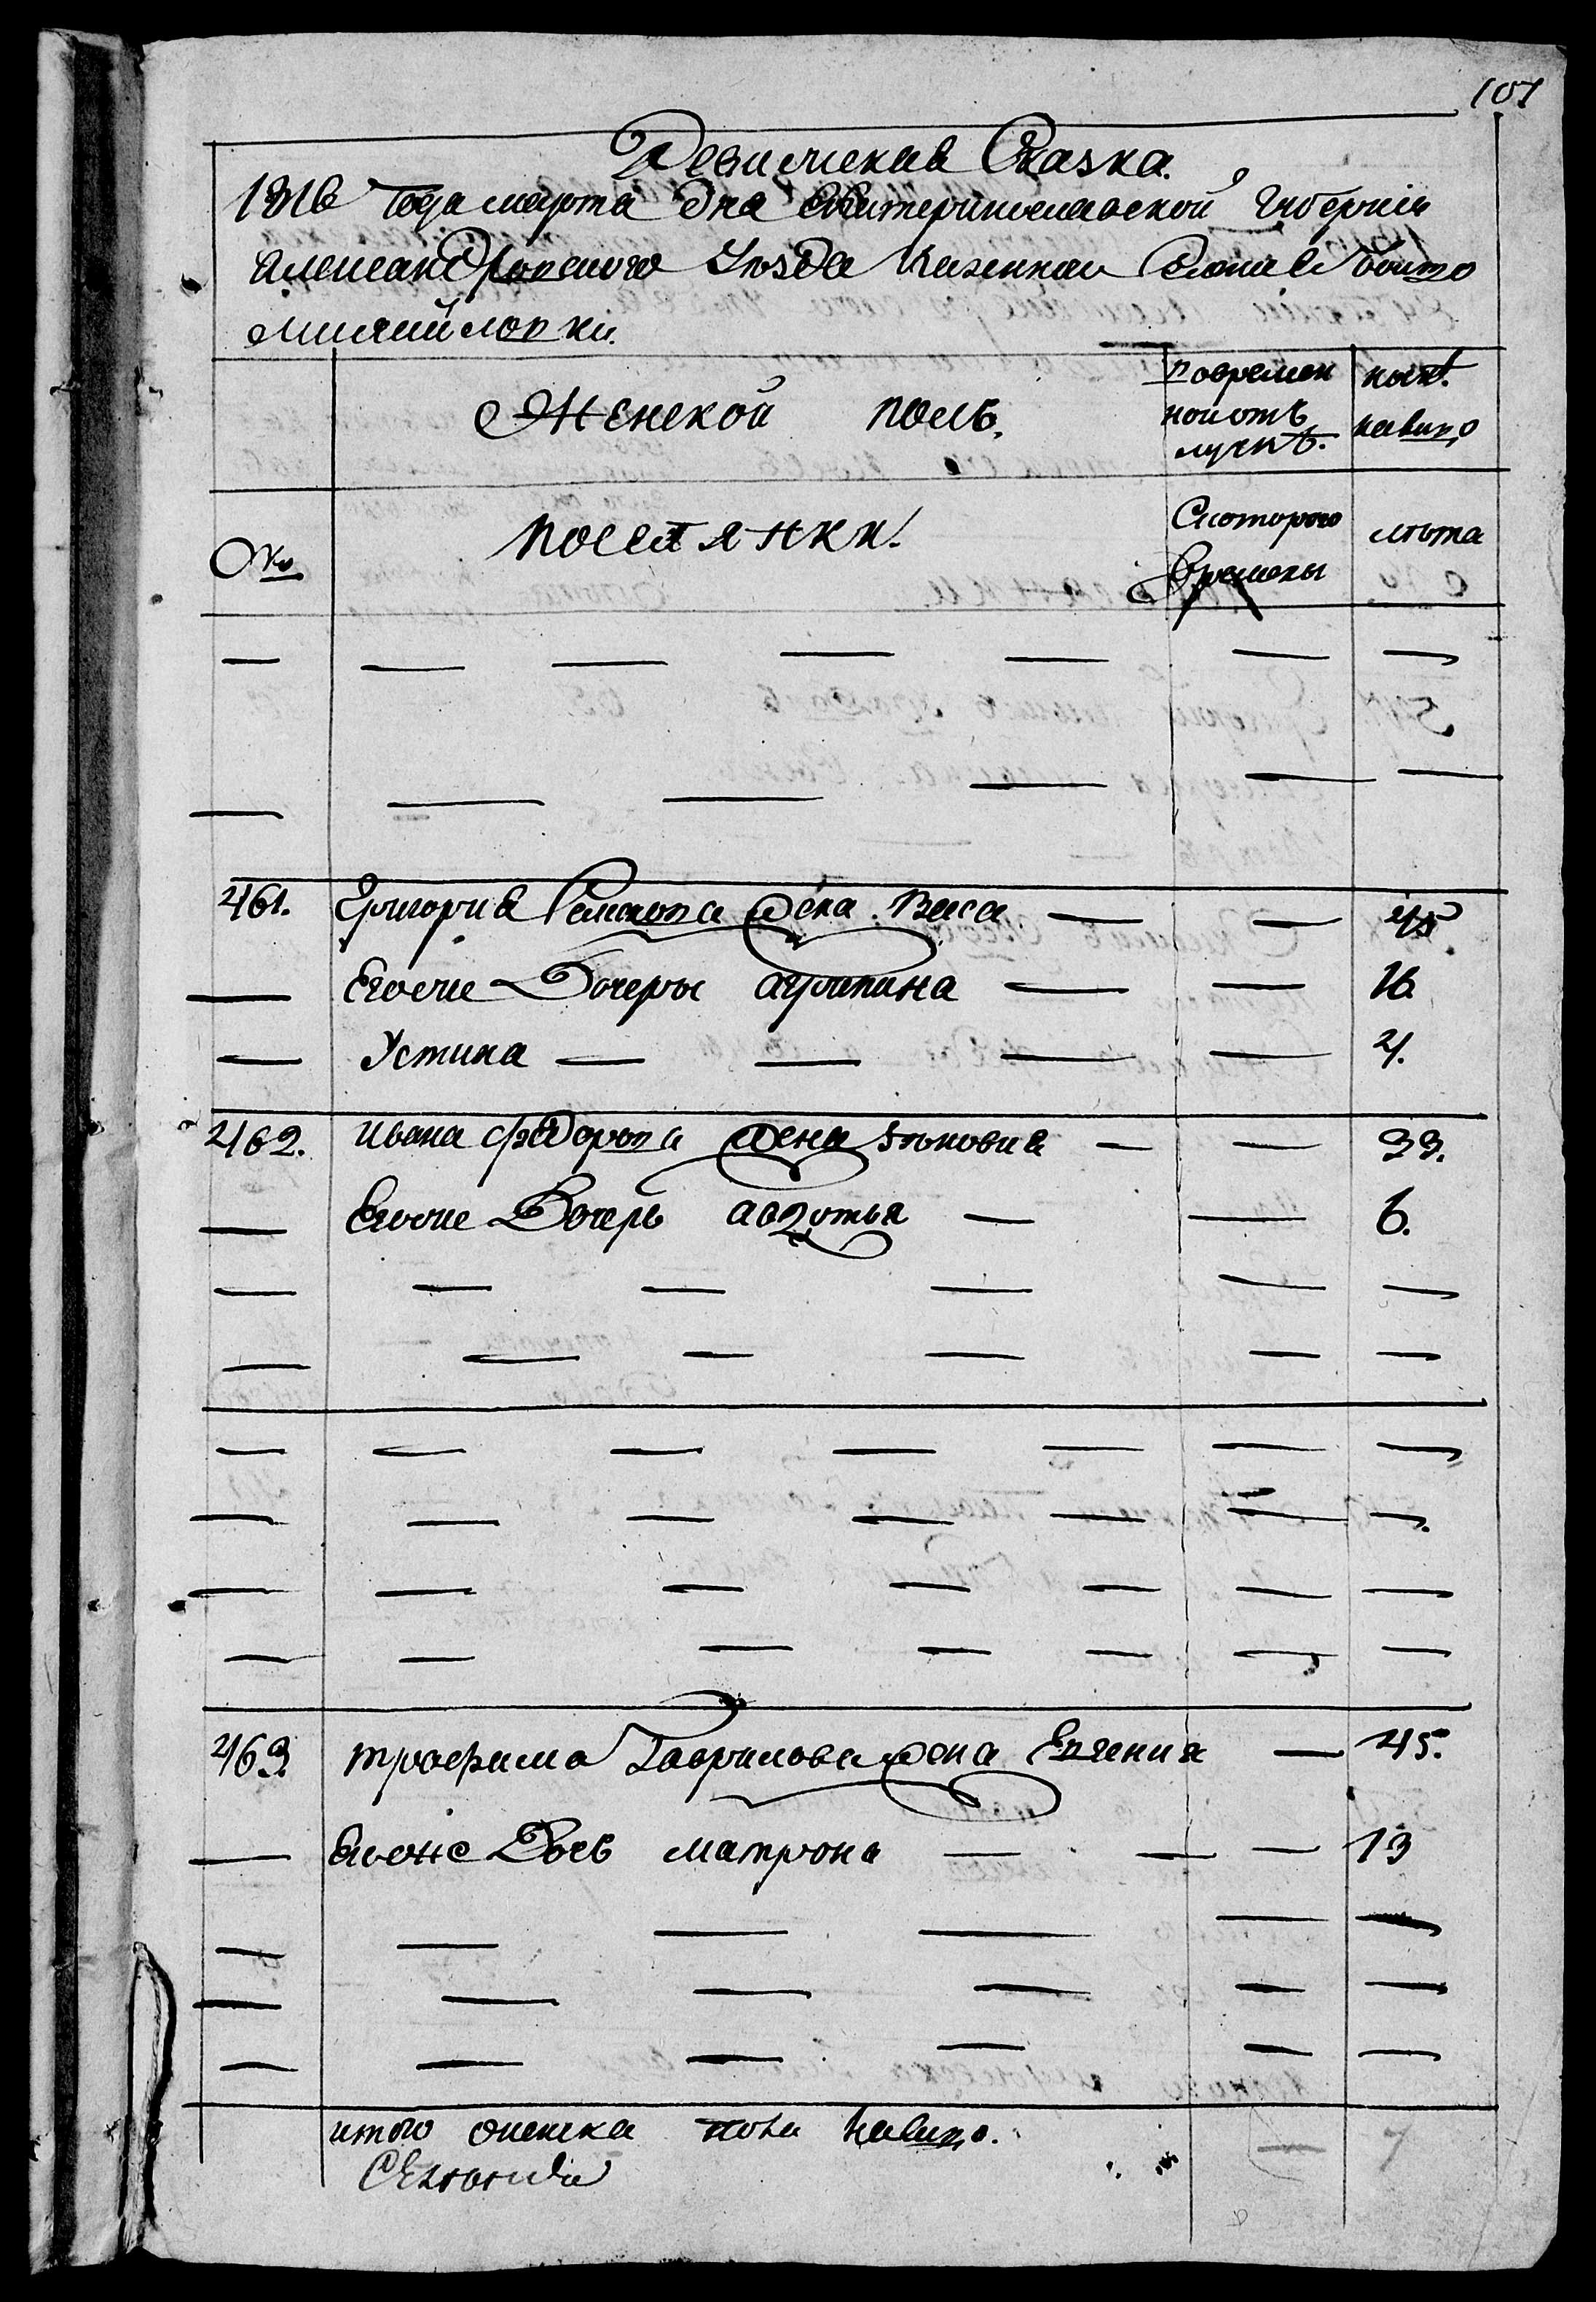 107
Ревижская Сказка.
1816 Года марта дня Екатеринославской Губерніи
Александровского Уезда Казенной Селенія
Михайловки.
Женской полъ,
повремен
ной отъ
лучкѣ.
нынѣ.
налицо
№
поселянки.
С которого
времены
лѣта
461. Григория жена Васа — — 45
— Егоже Дочеры агрипина — — 16.
— Устина — — — — 4.
462. Ивана Федорова жена Зѣновия — — 33.
— Егоже Дочерь авдотья — — 6.
463. трофима Гаврилова жена Евгения — 45.
— Егоже Дочь матрона — — — 13
итого женска пола налицо. — 7